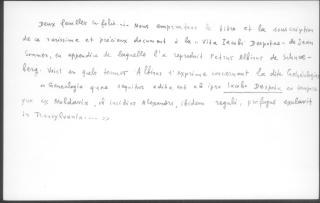 Deux feuilles in folio. — Nous empruntons le titre et la souscription
de ce rarissime et précieux document à la « Vita Jacobi Despotae » de Jean
Sommer, en appendice de laquelle l'a reproduit Petrus Albinus de Schnee-
berg. Voici en quels termes Albinus s'exprime concernant la dite Généalogie
« Genealogia quae sequitur edita est ab ipso Jacobo Despota eo tempore
quo ex Moldavia, ob insidias Alexandri, ibidem reguli, profugus exulavit
in Transylvania.... »